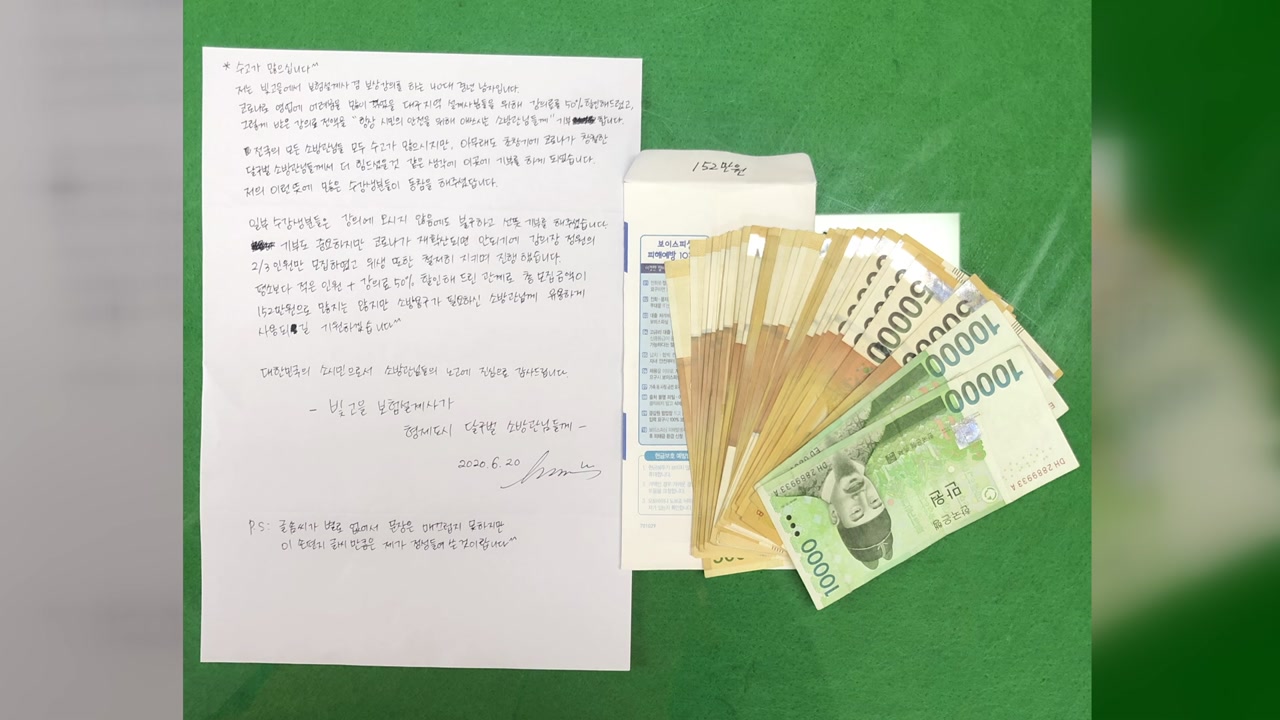 * 수고가 많으십니다^^
저는 빛고을에서 보험설계사 겸 보상강의를 하는 40대 중년 남자입니다.
코로나로 영업에 어려움을 많이 겪었을 대구지역 설계사분들을 위해 강의료를 50% 할인해드렸고,
그렇게 받은 강의료 전액을 "항상 시민의 안전을 위해 애쓰시는 소방관님들께" 기부 합니다.
전국의 모든 소방관님들 모두 수고가 많으시지만, 아무래도 초창기에 코로나가 창궐한
달구벌 소방관님들께서 더 힘드셨을것 같은 생각에 이곳에 기부를 하게 되었습니다.
저의 이런 뜻에 많은 수강생분들이 동참을 해주셨답니다.
일부 수강생분들은 강의에 오시지 않음에도 불구하고 선뜻 기부를 해주셨습니다.
기부도 중요하지만 코로나가 재확산되면 안되기에 강의장 정원의
2/3 인원만 모집하였고 위생 또한 철저히 지키며 진행했습니다.
평소보다 적은 인원 + 강의료 50% 할인해 드린 관계로 총 모집금액이
152만원으로 많지는 않지만 소방용구가 필요하신 소방관님께 유용하게
사용되길 기원하겠습니다^^
대한민국의 소시민으로서 소방관님들의 노고에 진심으로 감사드립니다.
- 빛고을 보험설계사가
형제도시 달구벌 소방관님들께 -
2020.6.20
P.S: 글솜씨가 별로 없어서 문장은 매끄럽지 못하지만
이 손편지 글씨 만큼은 제가 정성들여 쓴 것이랍니다^^
152만원
보이스피싱
피해예방 10
50000
50000
10000
10000
DH 2889933 A
만원
한국은행
10000